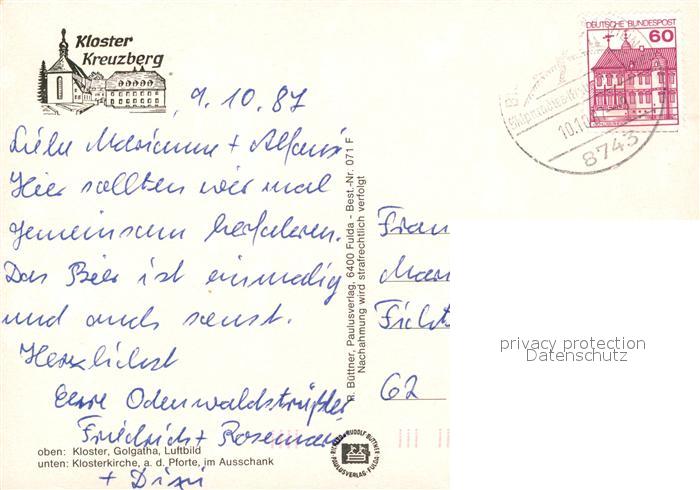 Kloster
Kreuzberg
9.10.87
Liebe Marianne + Alfons
Hier sollten wir mal
gemeinsam herfahren.
Das Bier ist einmalig
und auch sonst.
Herzlichst
Eure
Friedrich + Rosemarie
+ Dixi
oben: Kloster, Golgatha, Luftbild
unten: Klosterkirche, a. d. Pforte, im Ausschank
R. Büttner, Paulusverlag, 6400 Fulda - Best.-Nr. 071 F
Nachahmung wird strafrechtlich verfolgt
RUDOLF BÜTTNER
PAULUSVERLAG FULDA
DEUTSCHE BUNDESPOST
60
10.10
8743
Frau
Mar
Ficht
62
privacy protection
Datenschutz